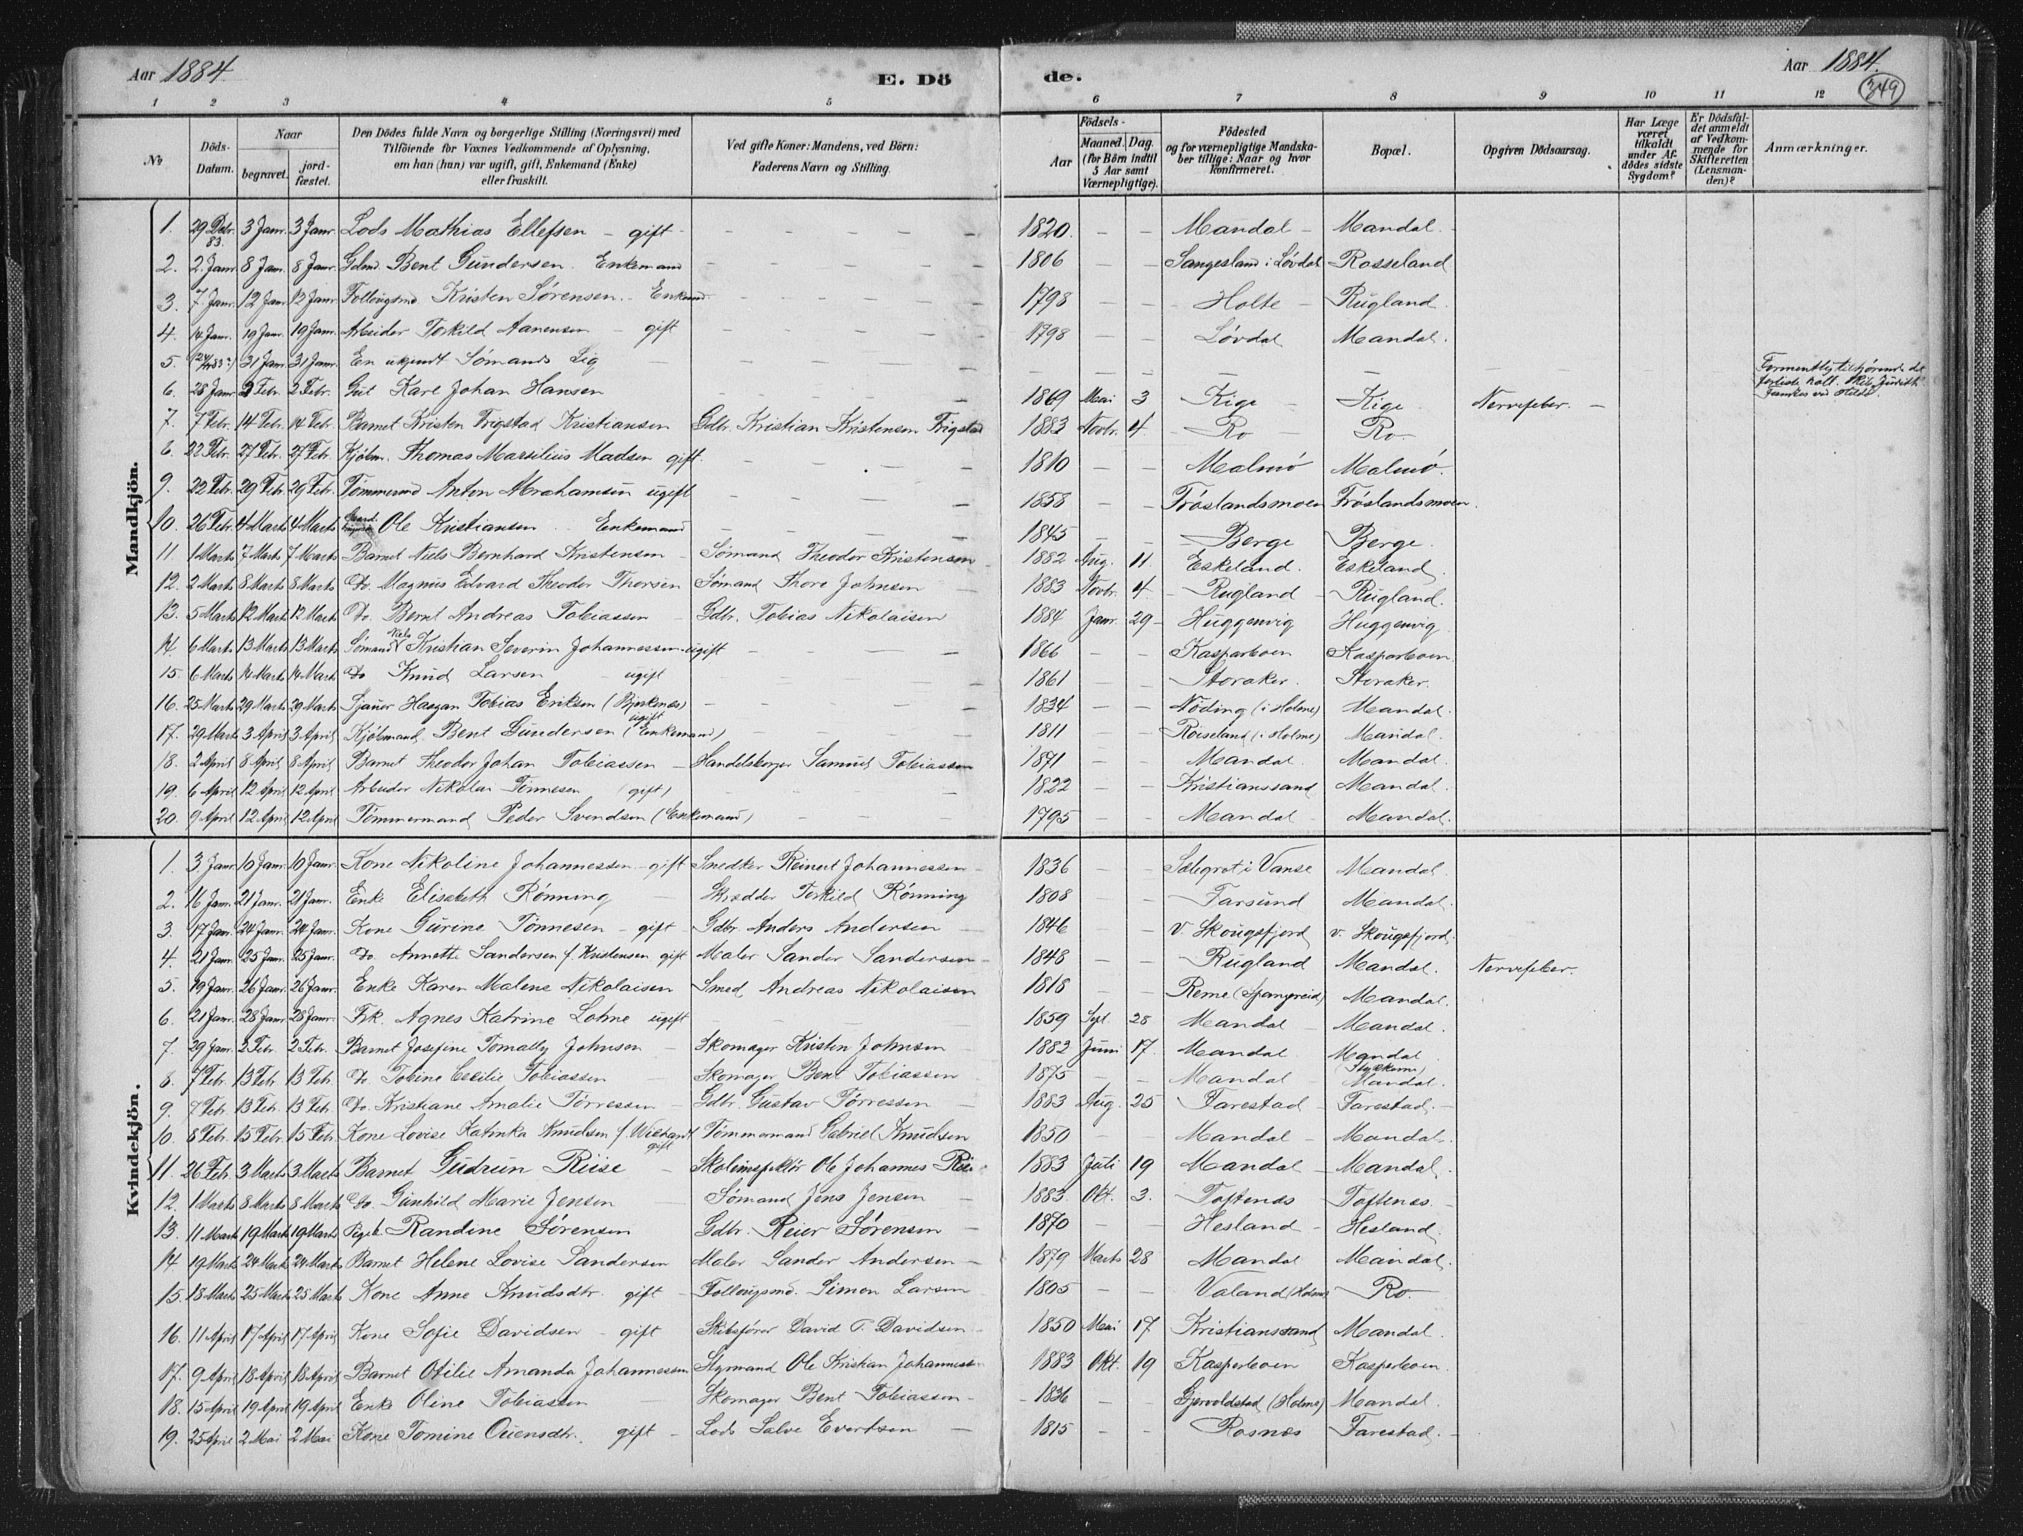 Aar 1884.
E. Dö
de.
Aar 1884.
349
1 2 3 4 5 6 7 8 9 10 11 12
No
Döds-Datum.
Naar
begravet.
jord-fæstet.
Den Dödes fulde Navn og borgerlige Stilling (Næringsvei) med
Tilföiende for Voxnes Vedkommende af Oplysning,
om han (hun) var ugift, gift, Enkemand (Enke)
eller fraskilt.
Ved gifte Koner: Mandens, ved Börn:
Faderens Navn og Stilling.
Födsels-
Aar
Maaned. Dag.
(for Börn indtil
5 Aar samt
Værnepligtige).
Födested
og for værnepligtige Mandska-
ber tillige: Naar og hvor
konfirmeret.
Bopæl.
Opgiven Dödsaarsag.
Har Læge
været
tilkaldt
under Af-
dödes sidste
Sygdom?
Er Dödsfal-
det anmeldt
af Vedkom-
mende for
Skifteretten
(Lensman-
den)?
Anmærkninger.
Mandkjön.
1. 29 Debr. 83. 3 Janr. 3 Janr. Lods Mathias Ellefsen – gift – 1820. – – Mandal – Mandal.
2. 2 Janr. 8 Janr. 8 Janr. Gdmd. Bent Gundersen. Enkemand 1806 – – Sangesland i Løvdal Rosseland
3. 7 Janr. 12 Janr. 12 Janr. Kristen Sørensen. – Enkemd. 1798 – – Holte – Rugland.
4. 14 Janr. 19 Janr. 19 Janr. Arbeider Torkild Aanensen – gift 1798 – – Løvdal Mandal.
5. 31 Janr. 31 Janr. En ukjendt Sømands Lig – – – Formentlig tilhørende det forliste holl. Skib Judith
6. 28 Janr. 2 Febr. 2 Febr. Gut Karl Johan Hansen 1869 Mai 3 Kige – Kige Nervefeber. –
7. 7 Febr. 14 Febr. 14 Febr. Barnet Kristen Frigstad Kristiansen Gdbr. Kristian Kristensen Frigstad 1883 Novbr. 4 Ro Ro –
8. 22 Febr. 27 Febr. 27 Febr. Kjøbm. Thomas Marselius Madsen gift. 1810 – – Malmø Malmø.
9. 22 Febr. 29 Febr. 29 Febr. Tømmermd Anton Abrahamsen ugift 1858 – – Frøslandsmoen Frøslandsmoen.
10. 26 Febr. 4 Marts 4 Marts Ole Kristiansen. Enkemand 1845 – – Berge Berge.
11 1 Marts 7 Marts 7 Marts Barnet Niels Bernhard Kristensen – Sømand Theodor Kristensen 1882 Aug. 11. Eskeland. Eskeland.
12. 2 Marts 8 Marts 8 Marts Do Magnus Edvard Theodor Thorsen Sømand Thore Johnsen – 1883 Novbr. 4 – Rugland – Rugland.
13. 5 Marts 12 Marts 12 Marts Do. Bernt Andreas Tobiassen – Gdbr. Tobias Nikolaisen 1884 Janr. 29 – Huggenvig Huggenvig
14 6 Marts 13 Marts 13 Marts Sømand Niels Kristian Severin Johannessen – ugift 1866 – – Kasparboen Kasparboen
15. 6 Marts 14 Marts 14 Marts Do Knud Larsen – ugift 1861 – – Storaker. Storaker.
16. 25 Marts 29 Marts 29 Marts Sjauer Haagan Tobias Eriksen (Bjerknæs) ugift 1834 – – Nøding (i Holme) Mandal.
17. 29 Marts 3 April 3 April Kjøbmand Bent Gundersen (Enkemand) 1811 – – Røiseland (i Holme) Mandal.
18. 2 April 8 April 8 April Barnet Theodor Johan Tobiassen – Handelsborger Samuel Tobiassen 1871 – – Mandal. Mandal.
19. 6 April 12 April 12 April Arbeider Nikolai Tønnesen (gift) 1822 – – Kristianssand Mandal.
20. 9 April 12 April 12 April Tømmermand Peder Svendsen (Enkemand) 1795 – – Mandal – Mandal.
Kvindekjön.
1. 3 Janr. 10 Janr. 10 Janr. Kone Nikoline Johannessen – gift Snedker Reinert Johannessen – 1836 – – i Vanse Mandal.
2. 16 Janr. 21 Janr. 21 Janr. Enke Elisabeth Rønning – Skrædder Torkild Rønning 1808 – – Farsund Mandal.
3. 17 Janr. 24 Janr. 24 Janr. Kone Gurine Tønnesen – gift – Gdbr. Anders Andersen 1846 – v. Skougsfjord v. Skougsfjord.
4. 21 Janr. 25 Janr. 25 Janr. Do. Annette Sandersen f. Kristensen gift Maler Sander Sandersen – 1848 – – Rugland Mandal. Nervefeber.
5. 19 Janr. 26 Janr. 26 Janr. Enke Karen Malene Nikolaisen Smed Andreas Nikolaisen 1818 – – Reme (Spangereid) Mandal.
6. 21 Janr. 28 Janr. 28 Janr. Frk. Agnes Katrine Lohne ugift – 1859 Sept. 28 – Mandal – Mandal.
7. 29 Janr. 2 Febr. 2 Febr. Barnet Josefine Johnson – Skomager Kristen Johnsen 1882 Juni 17. Mandal Mandal
8. 7 Febr. 13 Febr. 13 Febr. Do Tobine Cecilie Tobiassen – Skomager Bent Tobiassen – 1875 – – Mandal – Mandal.
9. 7 Febr. 13 Febr. 13 Febr. Do. Kristiane Amalie Tørressen – Gdbr. Gustav Tørressen – 1883 Aug. 25 – Farestad – Farestad. –
10. 8 Febr. 15 Febr. 15 Febr. Kone Lovise Katinka Knudsen f. gift Tømmermand Gabriel Knudsen 1850 – – Mandal – Mandal.
11. 26 Febr. 3 Marts 3 Marts Barnet Gudrun Riise – Skoleinspektør Ole Johannes Riise 1883 Juli 19 – Mandal – Mandal.
12. 1 Marts 8 Marts 8 Marts Do. Gunhild Marie Jensen – Sømand Jens Jensen – 1883. Okt. 3. Toftenæs Toftenæs. –
13. 11 Marts 19 Marts 19 Marts Pige Randine Sørensen Gdbr. Reier Sørensen – 1870 – – Hesland – Hesland.
14 19 Marts 24 Marts 24 Marts Barnet Helene Lovise Sandersen Maler Sander Andersen – 1879 Marts 28 Mandal Mandal.
15. 18 Marts 25 Marts 25 Marts Kone Anne Knudsdtr. gift – Simon Larsen 1805 – – Valand (Holme) – Ro. –
16. 11 April 17 April 17 April Kone Sofie Davidsen – gift Skibsfører David T. Davidsen – 1850 Mai 17 Kristianssand Mandal.
17. 9 April 18 April 18 April Barnet Otilie Amanda Johannessen Styrmand Ole Kristian Johannessen 1883 Okt. 19 – Kasperboen Kasperboen.
18. 15 April 19 April 19 April Enke Oline Tobiassen – Skomager Bent Tobiassen – 1836 – – Gjervoldstad (Holme) Mandal.
19. 25 April 2 Mai 2 Mai Kone Tomine Ouensdtr. gift – Lods Salve Evertsen – 1815 – – Rosnæs Farestad. –